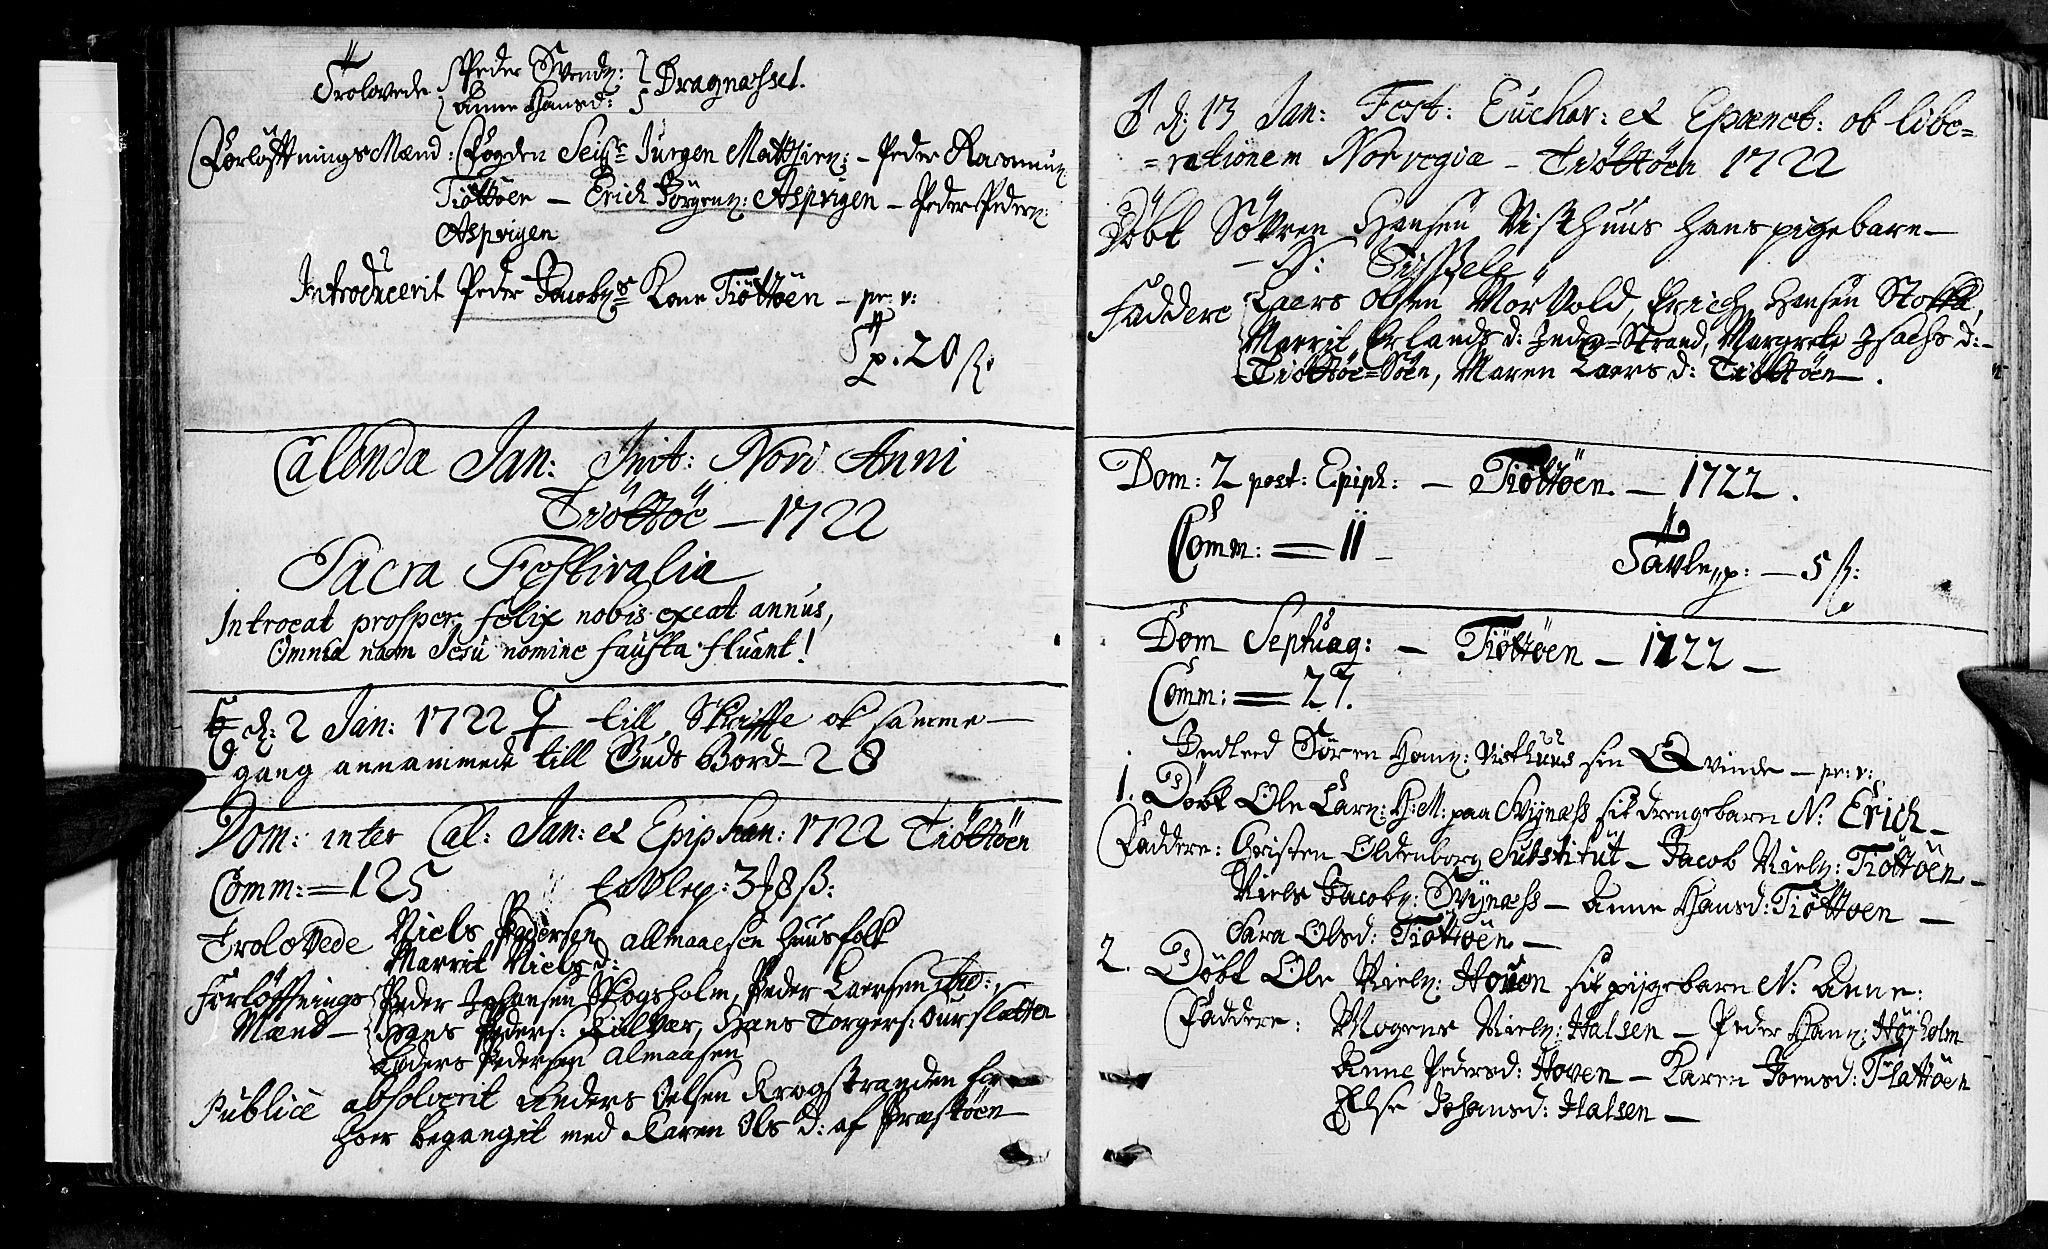 Trolovede Peder Svends: Dragnæsset.
Anne Hansd:
ForløftningsMænd: Fogden Seigr Jürgen Matthies: – Peder Rasmus:
Tiöttöen – Erich Jörgens: Aspvigen – Peder Peders:
Aspvigen
Introducerit Peder Jacobs: Kone Tiöttöen – pr: v:
T p. 20 ß
Calendæ Jan: Init: Novi Anni
Tiöttöe – 1722
Sacra Festivalia
Introeat prosper felix nobis exeat annus,
Omnia nam Jesu nomine fausta fluant!
d: 2 Jan: 1722 ♀ till Skriffte ok samme
gang annammede till Guds Bord – 28
Dom: inter Cal: Jan: et Epiphan: 1722 Tiöttöen
Comm: = 125 tavlep: 3 8 ß:
Trolovede Niels Pedersen allmaasen huusfolk
Marrit Nielsd:
Forløffnings Peder Johansen Skogsholm, Peder Laersen
Mænd – Hans Peders: Rielvær, Hans Torgers: Ourslætten
Anders Pedersen Almaasen
Publicè absolverit Anders Oelsen Krogstranden for
hoer begangit med Karen Ols d: af Præstöen
♂ d: 13 Jan: Fest: Euchar: et Epænet: ob libe=
=rationem Norvegiæ – Tiöttöen 1722
Döbt Søfren Hansen Visthuus hans pigebarn –
– N: Sissele
Faddere Laers Olsen Mörvold, Erich Hansen Stokka,
Marrit Erlands d: Indre=Strand, Margrete Isachs d: –
Tiöttöe=Söen, Maren Laers d: Tiöttöen – .
Dom: 2 post: Epiph: – Tiöttöen. – 1722.
Comm: = 11 –
Tavle p: – 5 ß:
Dom Septuag: – Tiöttöen – 1722 –
Comm: = 27.
Indleed Sören Hans: Visthuus sin Qvinde – pr: v:
1. Döbt Ole Lars: H: M: paa Svijnæss sit drengebarn N: Erich –
Faddere: Christen Oldenborg Substitut – Jacob Niels: Tiöttöen –
Niels Jacobs: Svijnæss – Anne Hansd: Tiöttoen –
Sara Olsd: Tiöttöen –
2. Döbt Ole Niels: Hoven sit pijgebarn N: Anne:
Faddere: Mogens Niels: Halsen – Peder Hans: Høyholm
Anne Pedersd: Hoven – Karen Joensd: Flattöen
Else Johansd: Halsen –